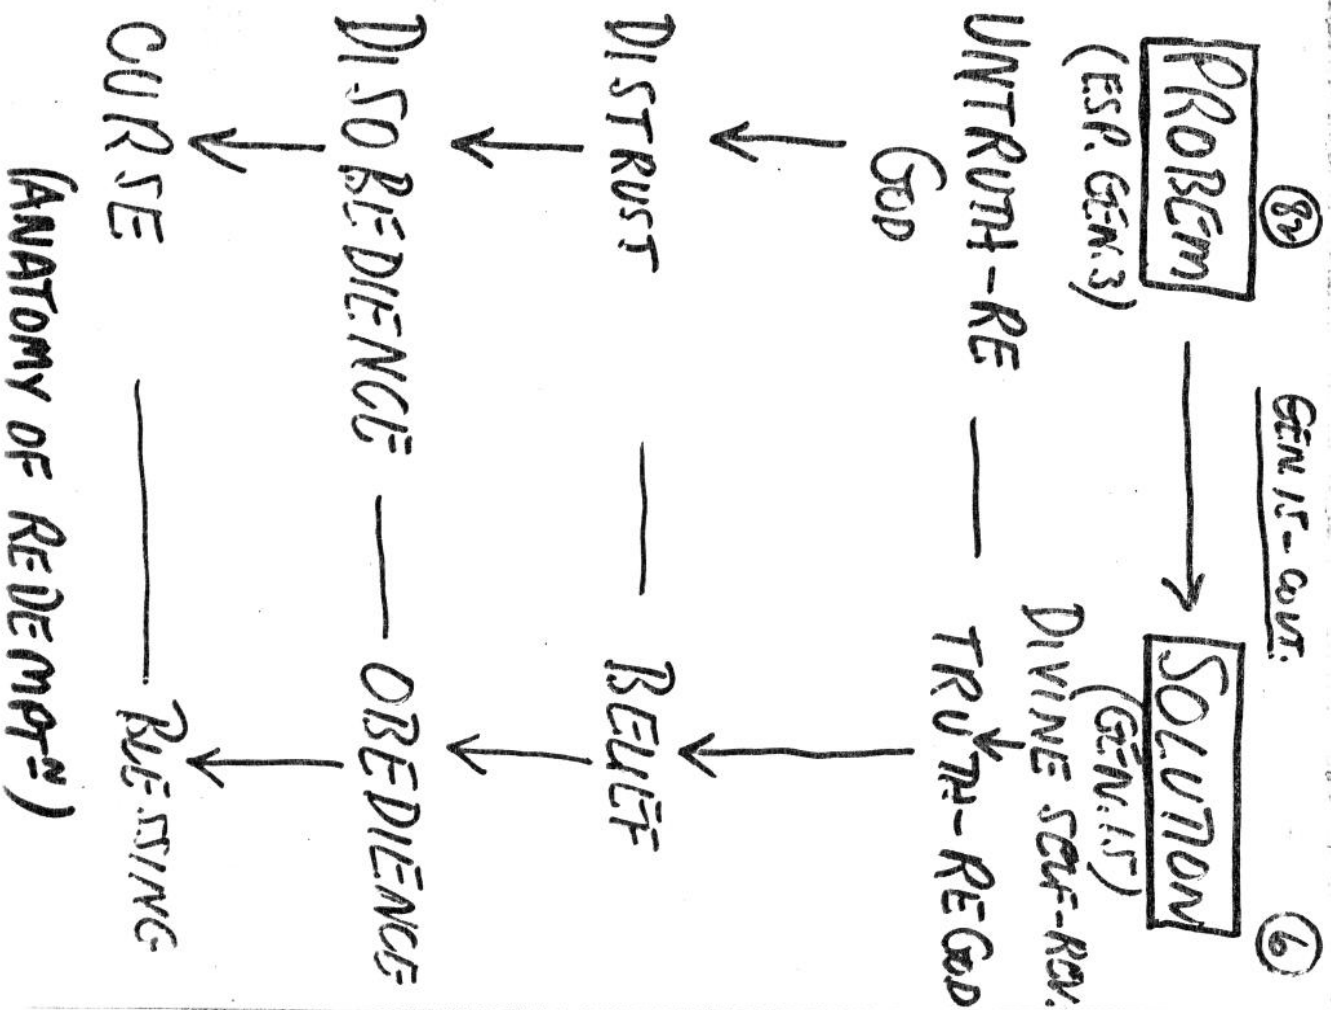 GEN 15 - CONT.
6
PROBEM → SOLUTION
(ESP. GEN. 3) (GEN. 15)
DIVINE SELF-REV.
↓
UNTRUTH - RE — TRUTH - RE GOD
GOD
↓ ↓
DISTRUST — BELIEF
↓ ↓
DISOBEDIENCE — OBEDIENCE
↓ ↓
CURSE — BLESSING
(ANATOMY OF REDEMPTᴺ)